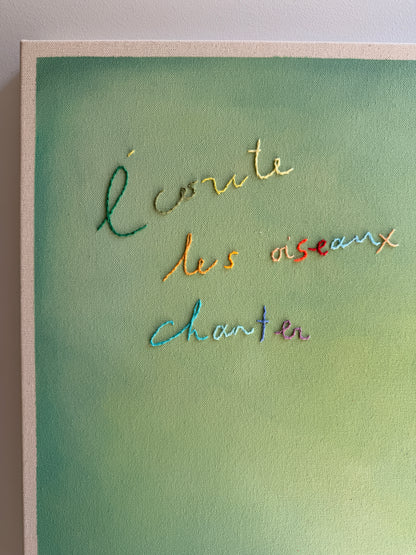 écoute
les oiseaux
chanter